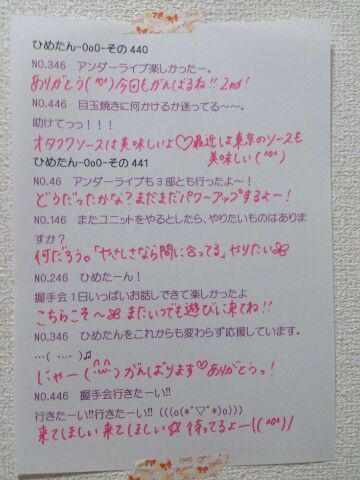 ひめたん-OoO-その 440
NO.346　アンダーライブ楽しかったー。
ありがとう(^o^)今回もがんばるね!! 2nd!
NO.446　目玉焼きに何かけるか迷ってる～～。
助けてっっ！！！
オタフクソースは美味しいよ♡最近は東京のソースも
美味しい(^o^)
ひめたん-OoO-その 441
NO.46　アンダーライブも３部とも行ったよ～！
どうだったかな？まだまだパワーアップするよー！
NO.146　またユニットをやるとしたら、やりたいものはありま
すか？
何だろう。「やさしさなら間に合ってる」やりたい
NO.246　ひめたーん！
握手会１日いっぱいお話しできて楽しかったよ
こちらこそ～ またいつでも遊びに来てね!!
NO.346　ひめたんをこれからも変わらず応援しています。
…( ·‿· )♫
じゃー(^ω^)がんばります♡ありがとうっ！
NO.446　握手会行きたーい!!
行きたーい!!行きたーい!! (((o(*ﾟ▽ﾟ*)o)))
来てほしい来てほしい☆待ってるよー!(^o^)/